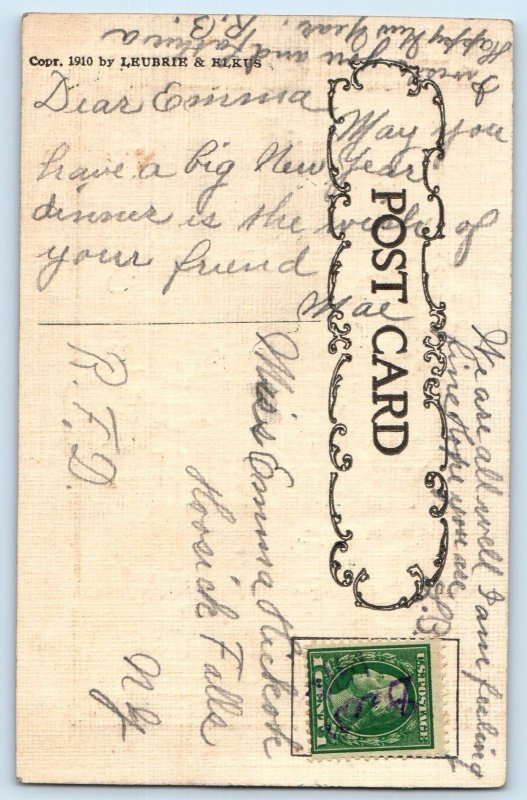 I wish you and Patricia
Happy New Year.
R.B.
Copr. 1910 by LEUBRIE & ELKUS
Dear Emma
May you
have a big New Year
dinner is the wish of
your friend
Mae
POST CARD
We are all well I am feeling
fine Hope you are
Miss Emma Hickok
Hoosick Falls
N.Y.
R.F.D.
U.S. POSTAGE
1 CENT 1